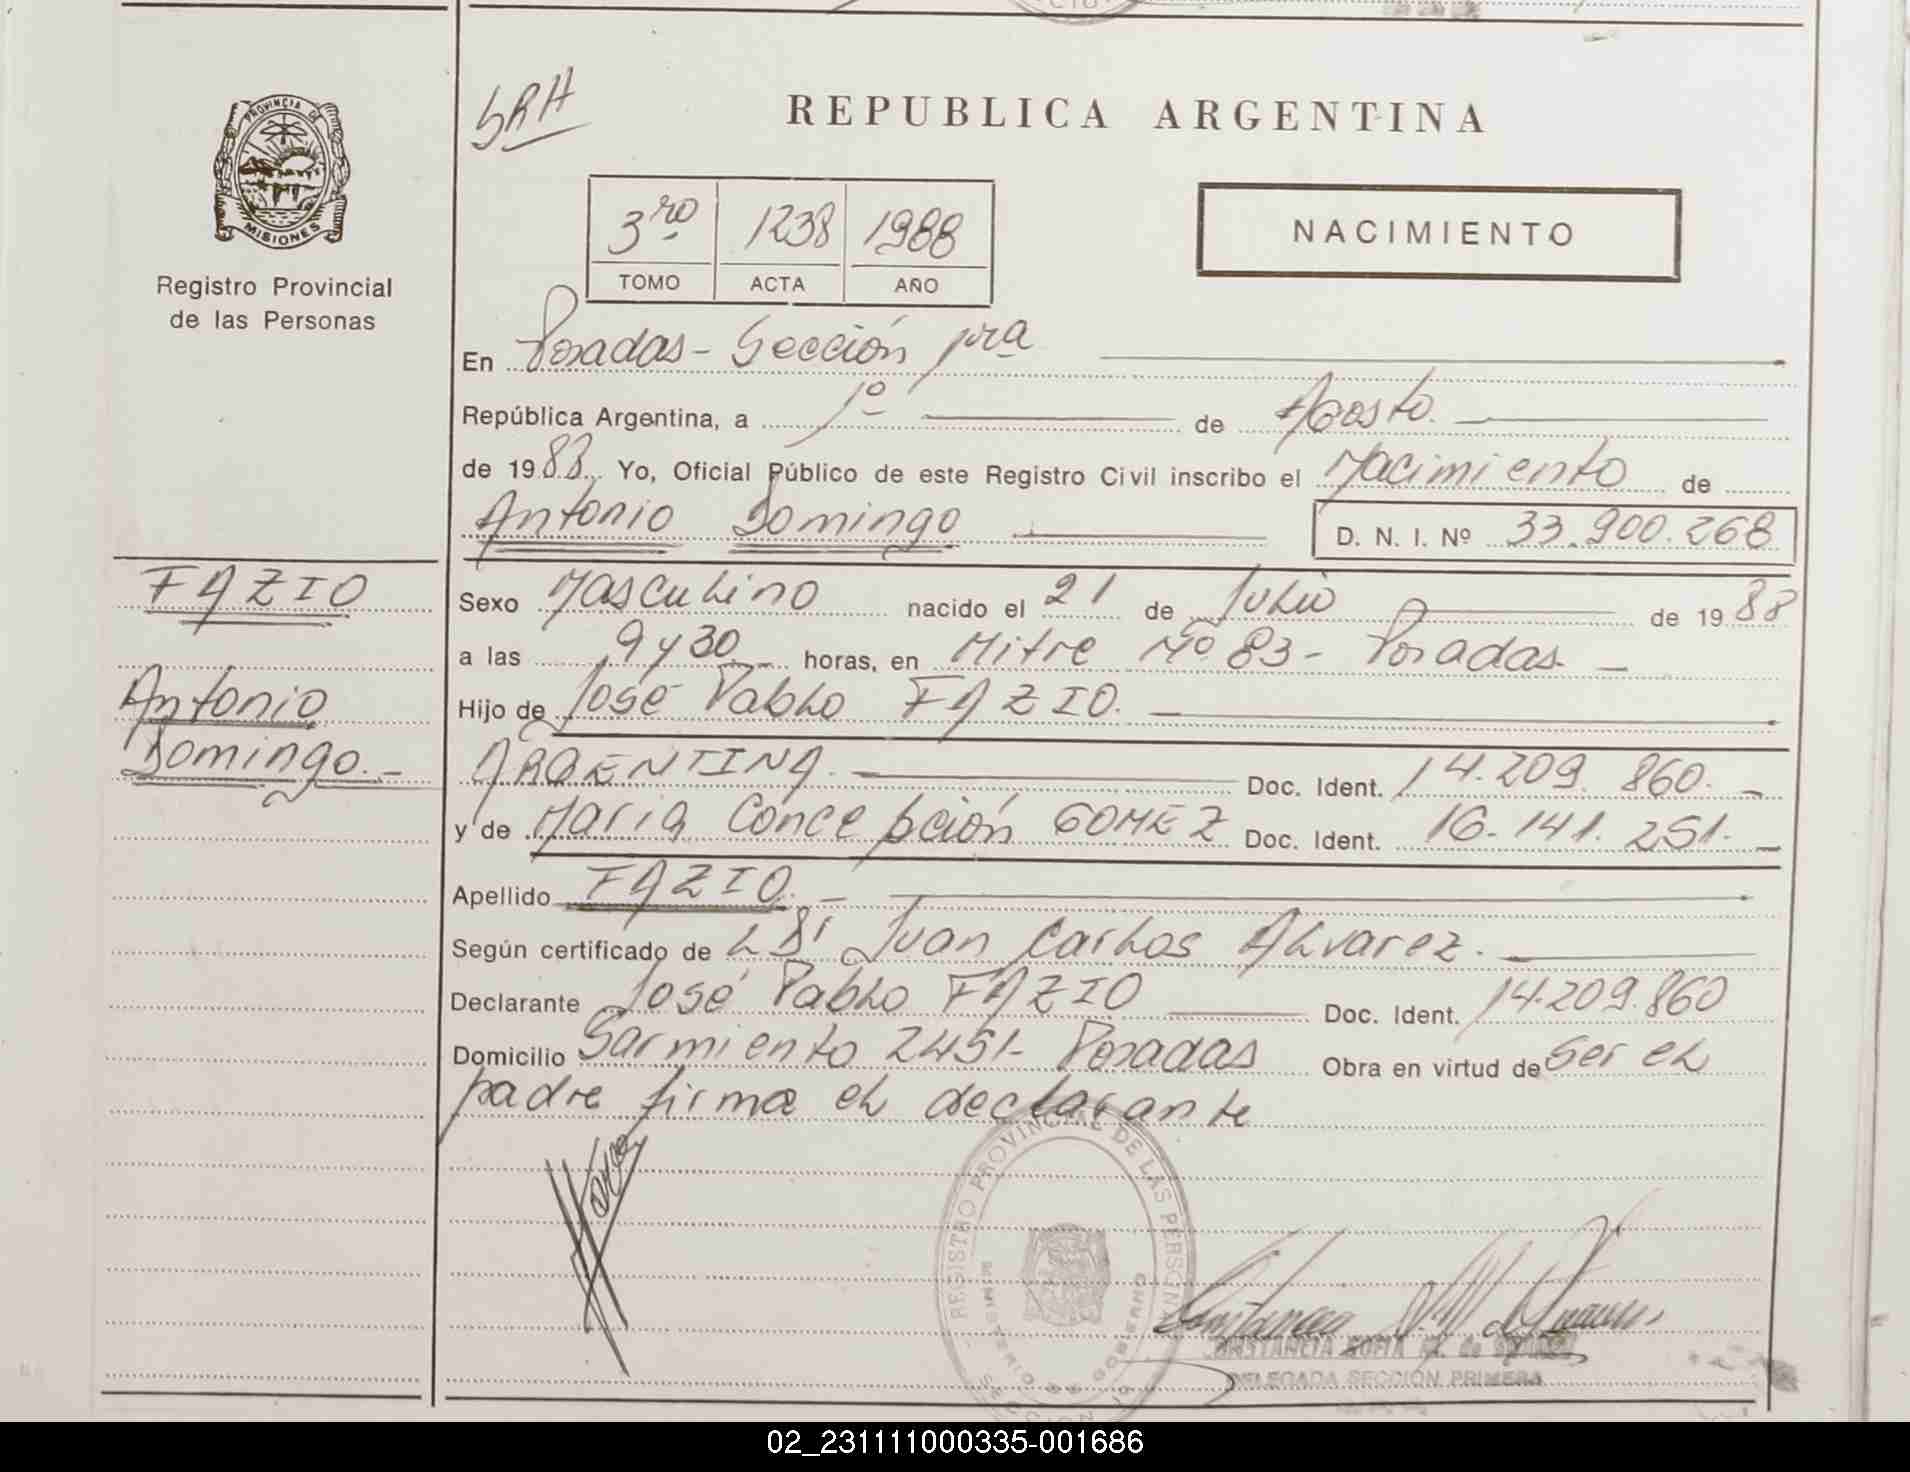 PROVINCIA DE
MISIONES
Registro Provincial
de las Personas
SRH
REPUBLICA ARGENTINA
3ro 1238 1988
TOMO ACTA AÑO
NACIMIENTO
En Posadas - Sección 1ra
República Argentina, a 1º de Agosto.
de 1988 Yo, Oficial Público de este Registro Civil inscribo el Nacimiento de
Antonio Domingo D. N. I. Nº 33.900.268
FAZIO
Antonio
Domingo. -
Sexo Masculino nacido el 21 de Julio de 1988
a las 9 y 30 horas, en Mitre Nº 83 - Posadas. -
Hijo de José Pablo FAZIO.
ARGENTINA. Doc. Ident. 14.209.860. -
y de María Concepción GOMEZ Doc. Ident. 16.141.251. -
Apellido FAZIO. -
Según certificado de Juan Carlos Alvarez.
Declarante José Pablo FAZIO Doc. Ident. 14.209.860
Domicilio Sarmiento 2451 - Posadas Obra en virtud de ser el
padre firma el declarante
REGISTRO PROVINCIAL DE LAS PERSONAS
MINISTERIO DE GOBIERNO
SECCION 1ª
CONSTANCIA SOFIA
DELEGADA SECCION PRIMERA
02_231111000335-001686